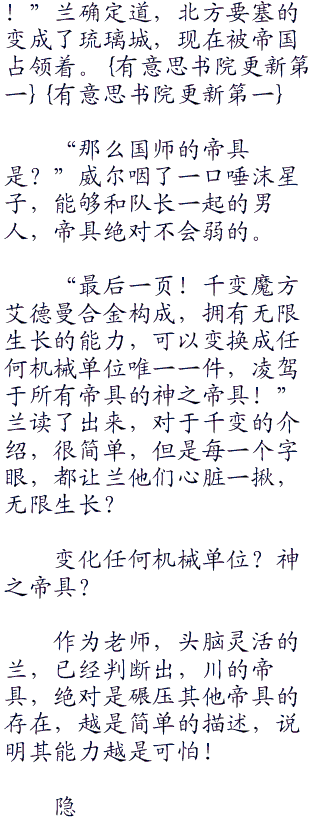 ！”兰确定道，北方要塞的
变成了琉璃城，现在被帝国
占领着。{有意思书院更新第
一} {有意思书院更新第一}
“那么国师的帝具
是？”威尔咽了一口唾沫星
子，能够和队长一起的男
人，帝具绝对不会弱的。
“最后一页！千变魔方
艾德曼合金构成，拥有无限
生长的能力，可以变换成任
何机械单位唯一一件，凌驾
于所有帝具的神之帝具！”
兰读了出来，对于千变的介
绍，很简单，但是每一个字
眼，都让兰他们心脏一揪，
无限生长？
变化任何机械单位？神
之帝具？
作为老师，头脑灵活的
兰，已经判断出，川的帝
具，绝对是碾压其他帝具的
存在，越是简单的描述，说
明其能力越是可怕！
隐